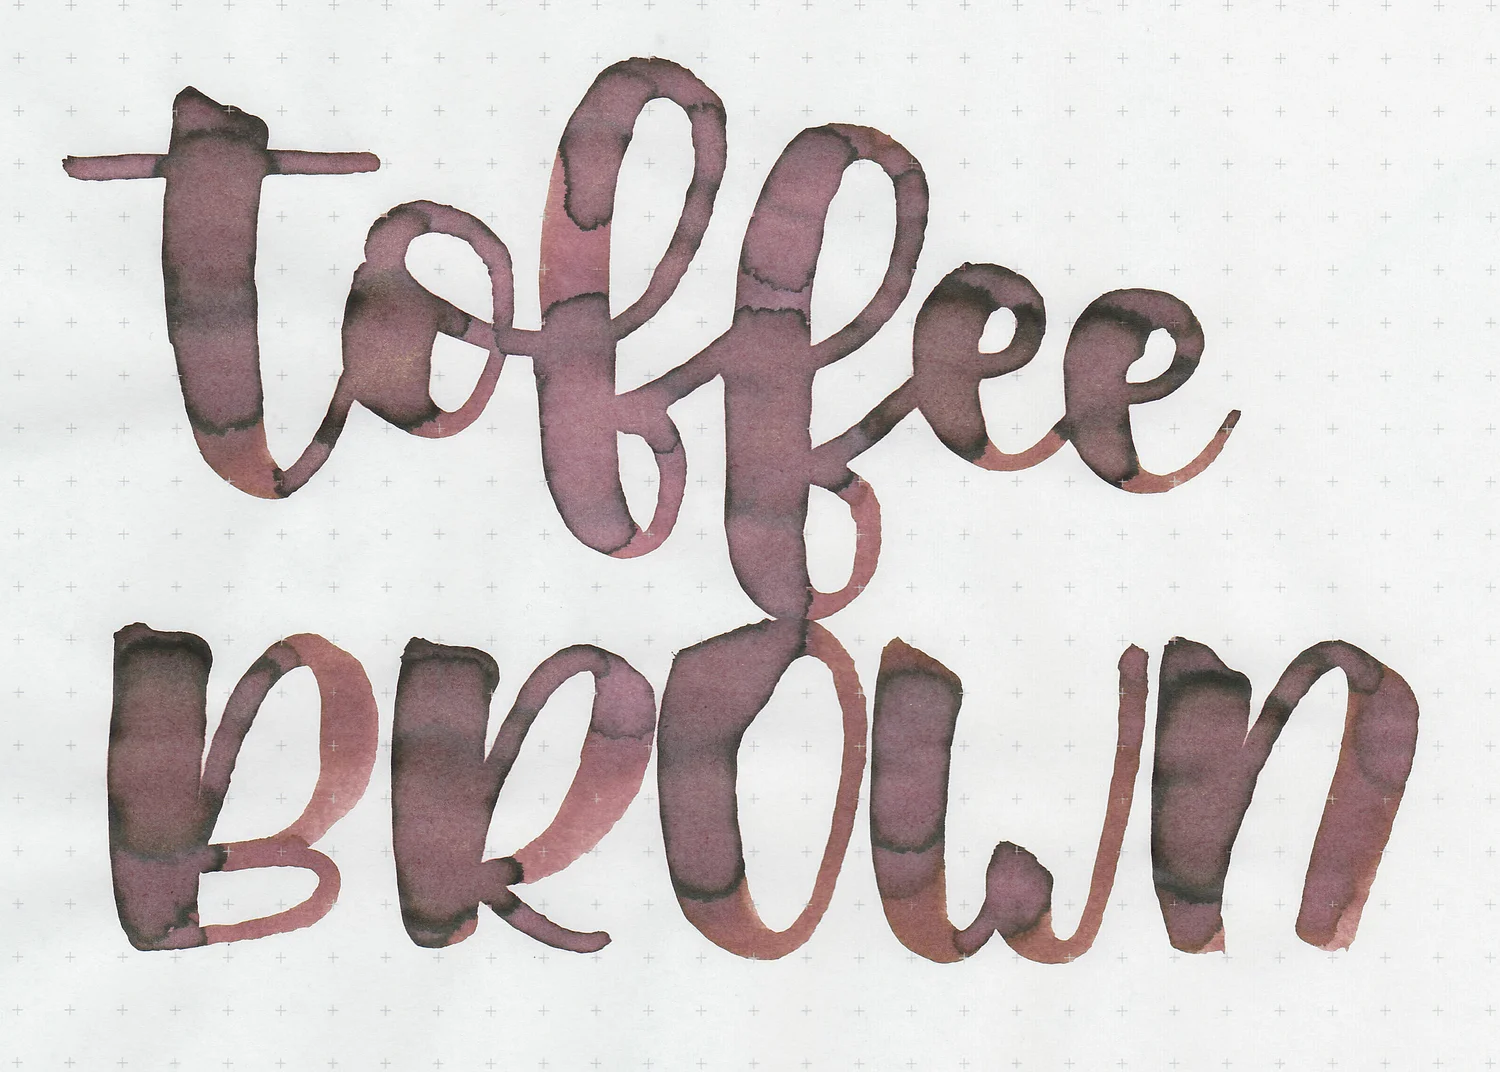 toffee
BROWN